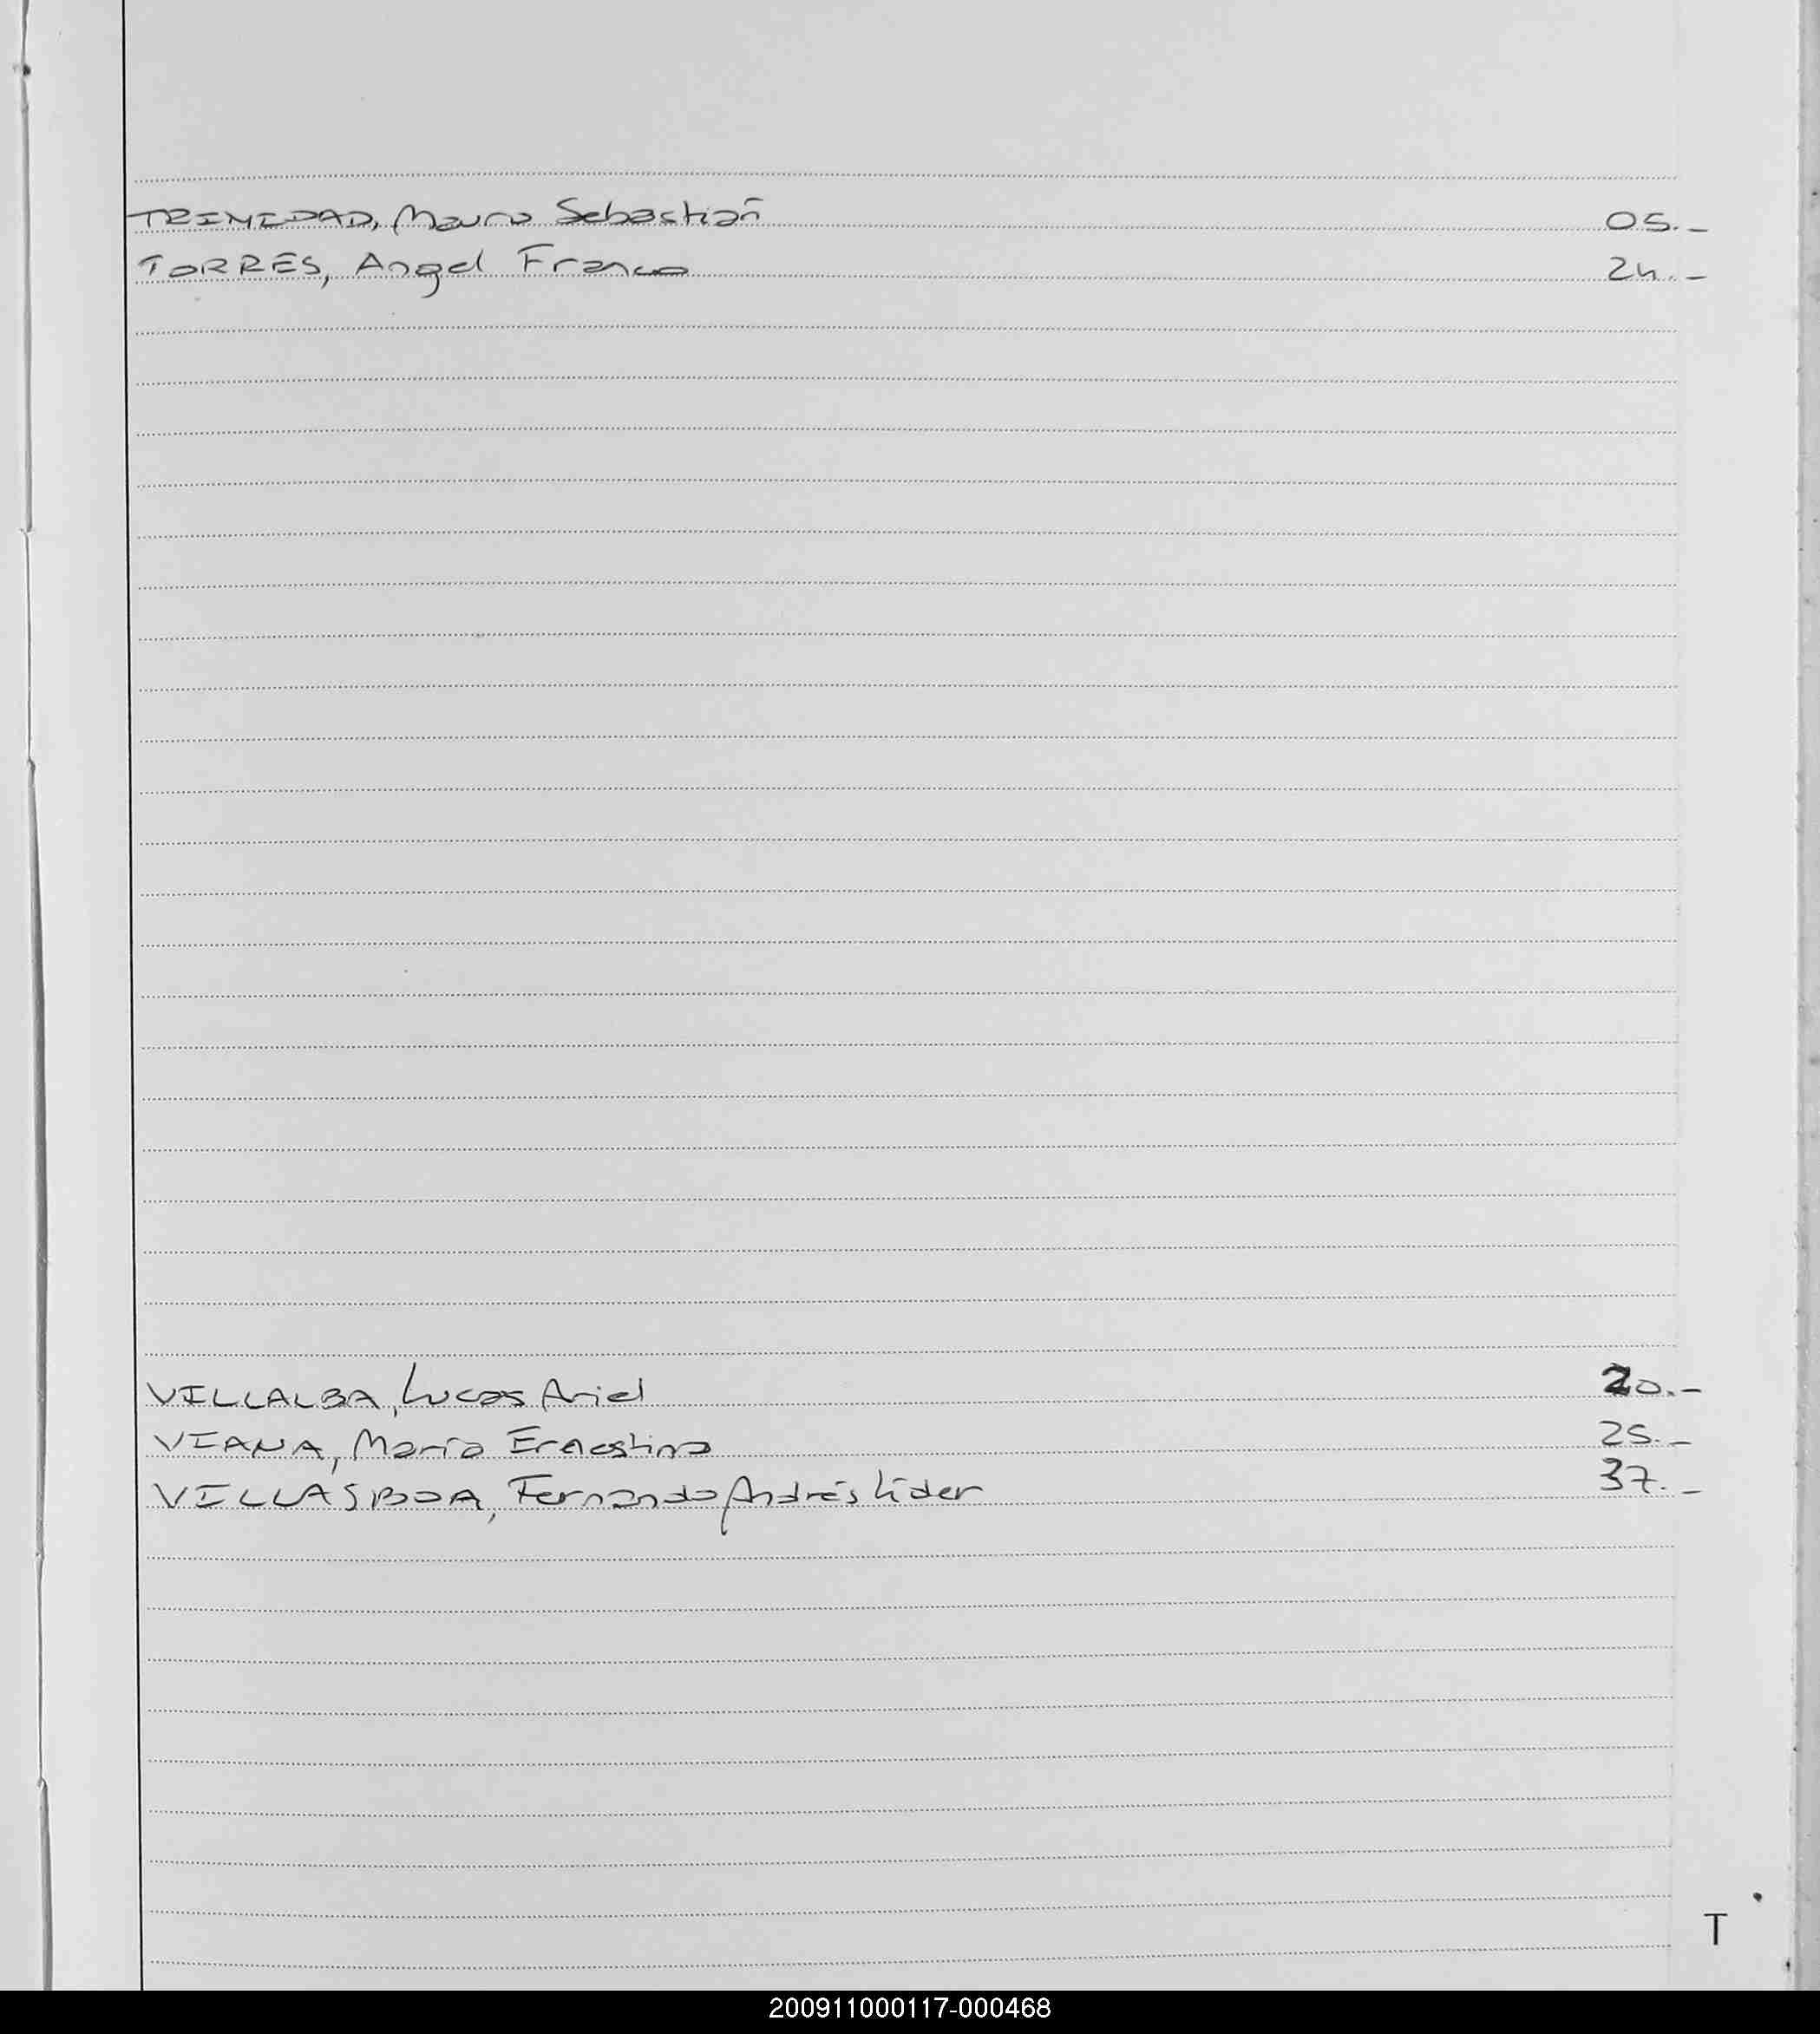 TRINIDAD, Mauro Sebastián 05.-
TORRES, Angel Franco 24.-
VILLALBA, Lucas Ariel 20.-
VIANA, María Ernestina 25.-
VILLASBOA, Fernando Andrés Líder 37.-
T
200911000117-000468